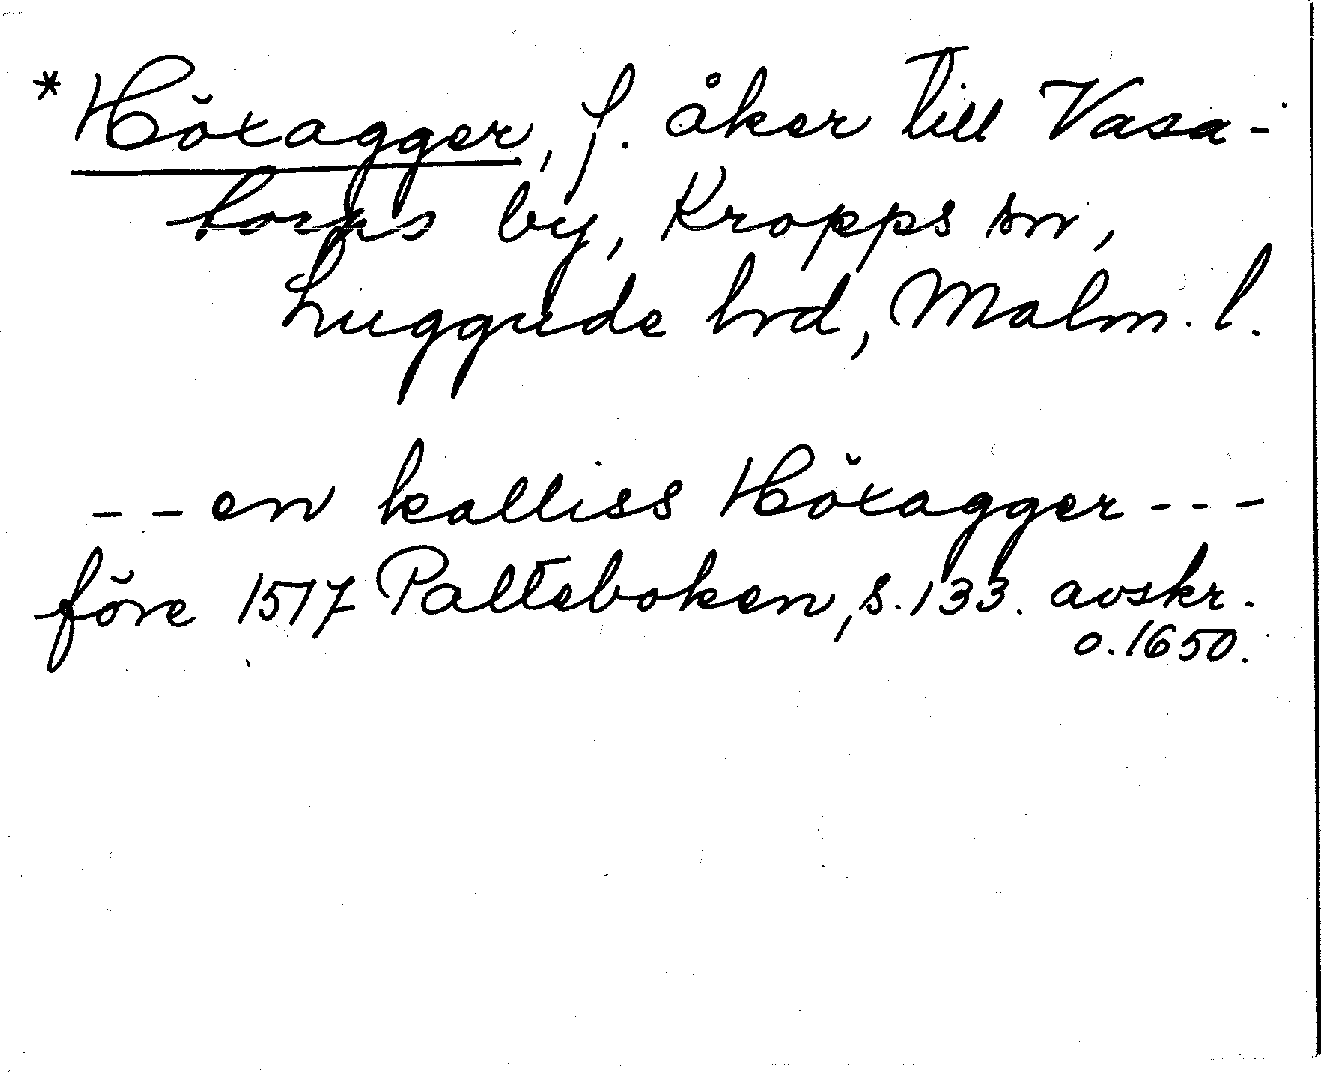 *Höxagger, f. åker till Vasa-
torps by, Kropps sn,
Luggude hrd, Malm. l.
- - en kalliss Höxagger - - -
före 1517 Palteboken, s. 133. avskr.
o. 1650.